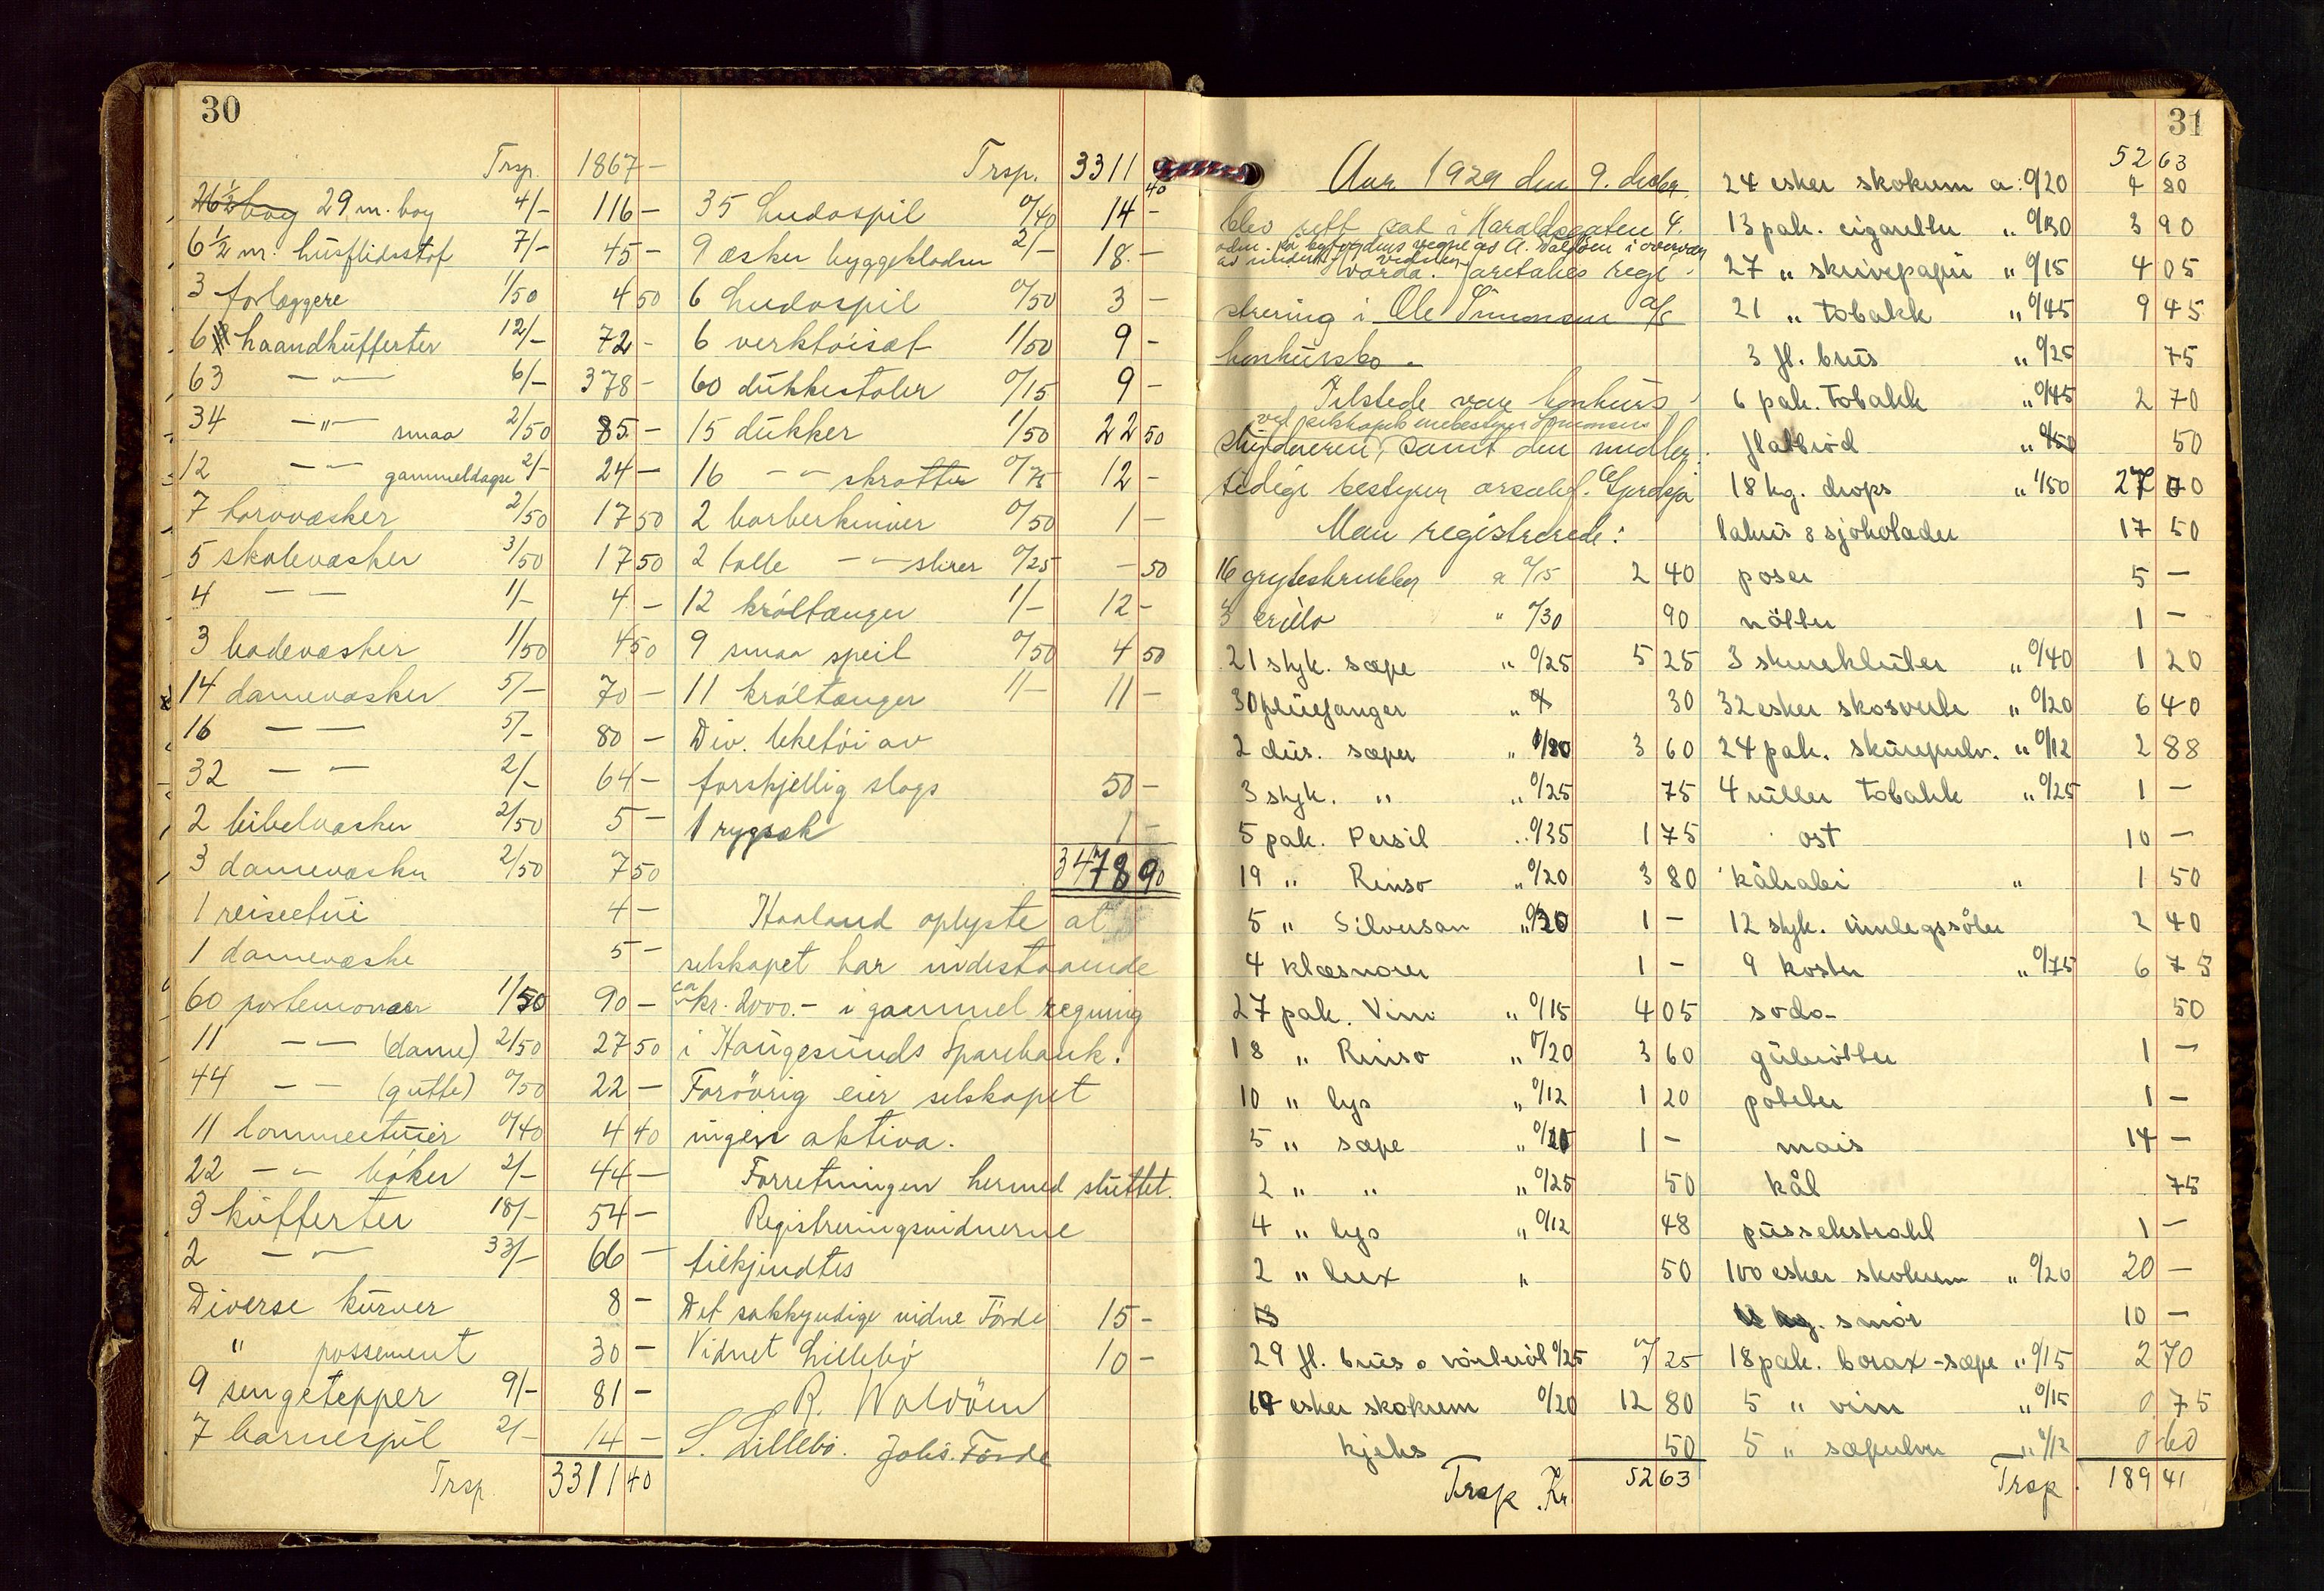 30
Trsp. 1867 -
26½ boy 29 m. boy 4/- 116 -
6½ m. husflidsstof 7/- 45 -
3 forlæggere 1/50 4 50
6 haandkufferter 12/- 72 -
63 - " - 6/- 378 -
34 - " - smaa 2/50 85 -
12 - " - gammeldagse 2/- 24 -
7 torvvæsker 2/50 17 50
5 skolevæsker 3/50 17 50
4 - - 1/- 4 -
3 badevæsker 1/50 4 50
14 damevæsker 5/- 70 -
16 - - 5/- 80 -
32 - - 2/- 64 -
2 bibelvæsker 2/50 5 -
3 damevæsker 2/50 7 50
1 reiseetui 4 -
1 dameveske 5 -
60 portemonæer 1/50 90 -
11 - - (dame) 2/50 27 50
44 - - (gutte) 0/50 22 -
11 lommeetuier 0/40 4 40
22 - " - bøker 2/- 44 -
3 kufferter 18/- 54 -
2 - " - 33/- 66 -
Diverse kurver 8 -
" possement 30 -
9 sengetepper 9/- 81 -
7 barnespil 2/- 14 -
Trsp. 3311 40
Trsp. 3311 40
35 Ludospil 0/40 14 -
9 æsker byggeklodser 2/- 18 -
6 Ludospil 0/50 3 -
6 verktøisæt 1/50 9 -
60 dukkestoler 0/15 9 -
15 dukker 1/50 22 50
16 - " - skrotter 0/75 12 -
2 barberkniver 0/50 1 -
2 balle - " - 0/25 - 50
12 krøltænger 1/- 12 -
9 smaa speil 0/50 4 50
11 krøltænger 1/- 11 -
Div. leketøi av
forskjellig slags 50 -
1 rygsæk 1 -
3478 90
Haaland oplyste at
selskapet har indestaaende
ca kr. 2000.- i gammel regning
i Haugesunds Sparebank.
Forøvrig eier selskapet
ingen aktiva.
Forretningen hermed sluttet.
Registreringsvidnerne
tilkjendtes
Det sakkyndige vidne Førde 15 -
Vidnet Lillebø 10 -
R. Waldöen
S. Lillebø. Johs. Førde
31
Aar 1929 den 9. desbr.
blev rett sat i Haraldsgaten 4.
adm. på byfogdens vegne av A. Valdøen i overvær
av undert. vidner
Foretakes regi-
strering i Ole Simonsen A/S
konkursbo.
Tilstede var konkurs-
ved selskapets medbestyrer Simonsen
skyldneren, samt den midler-
tidige bestyrer orsakf. Gjerdsjø
Man registrerede:
16 gryteskrubber a 0/15 2 40
3 " 0/30 90
21 styk. sæpe " 0/25 5 25
30 fluefanger " 30
2 dus. sæper " 1/80 3 60
3 styk. " " 0/25 75
5 pak. Persil " 0/35 1 75
19 " Rinso " 0/20 3 80
5 " Silversan " 0/20 1 -
4 klæsnorer 1 -
27 pak. Vim " 0/15 4 05
18 " Rinso " 0/20 3 60
10 " lys " 0/12 1 20
5 " sæpe " 0/20 1 -
2 " " " 0/25 50
4 " lys " 0/12 48
2 " lux " 50
29 fl. brus o vørterøl 0/25 7 25
64 esker skokrem 0/20 12 80
kjeks 50
Trsp. Kr. 52 63
52 63
24 esker skokrem a 0/20 4 80
13 pak. cigaretter " 0/30 3 90
27 " skrivepapir " 0/15 4 05
21 " tobakk " 0/45 9 45
3 fl. brus " 0/25 75
6 pak. tobakk " 0/45 2 70
flatbrød " 0/50 50
18 kg. drops " 1/50 27 00
lakris & sjokolader 17 50
poser 5 -
nøtter 1 -
3 skurekluter " 0/40 1 20
32 esker skosverte " 0/20 6 40
24 pak. skurepulv. " 0/12 2 88
4 ruller tobakk " 0/25 1 -
ost 10 -
kålrabi " 1 50
12 styk. innlegssåler 2 40
9 koster " 0/75 6 75
soda 50
gulrøtter 1 -
poteter 1 -
mais 14 -
kål 75
pussekstrakt 1 -
100 esker skokrem " 0/20 20 -
kg. smør 10 -
18 pak. borax-sæpe " 0/15 2 70
5 " vim " 0/15 0 75
5 " sæpulver " 0/12 0 60
Trsp. 189 41